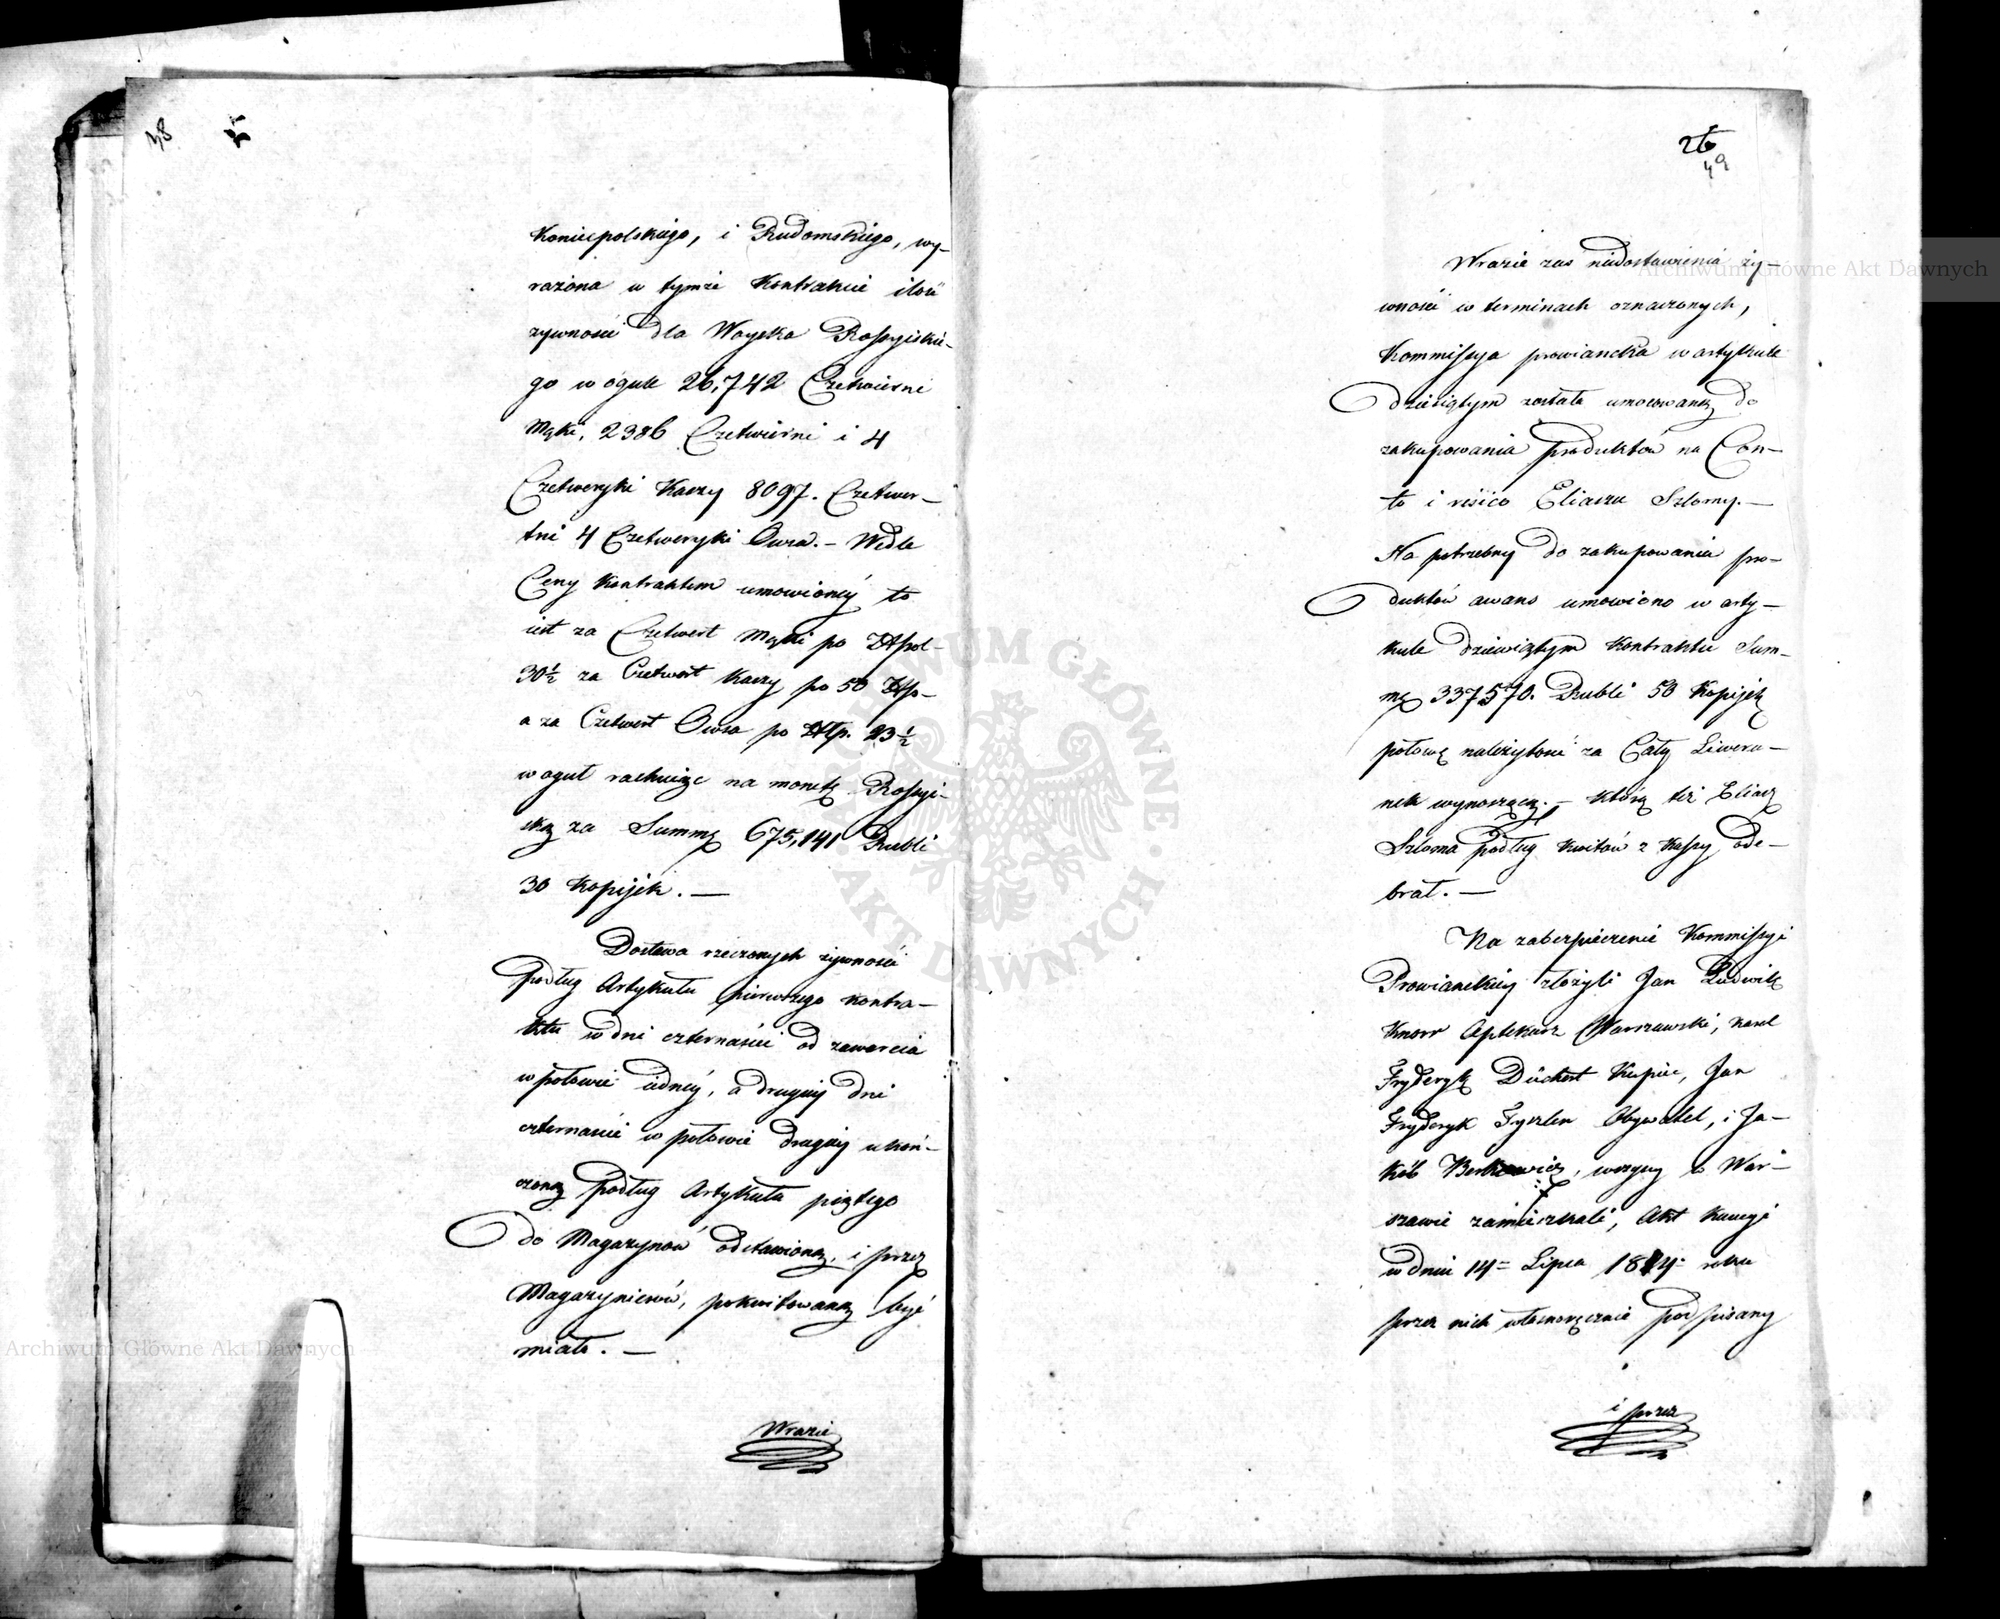 48
Koniecpolskiego, i Radomskiego, wy-
rażona w tymże Kontrakcie ilość
żywności dla Woyska Rossyiskie-
go w ogule 26,742 Czetwierni
Mąki, 2386 Czetwierni i 4
Czetweryki Kaszy 8097. Czetwer-
tni 4 Czetweryki Owsa. – Wedle
Ceny Kontraktem umowionéy to
iest za Czetwert Mąki po Złpol-
30½ za Czetwert Kaszy po 50 Złp-
a za Czetwert Owsa po Złp. 23½
w oguł rachuiąc na monetę Rossyi-
ską za Summę 675,141 Rubli
30 Kopijek. —
Dostawa rzeczonych żywności
podług Artykułu pierwszego kontra-
ktu w dni czternaście od zawarcia
w połowie iednéy, a drugiéy dni
czternaście w połowie drugiéy ukoń-
czoną podług Artykułu piątego
do Magazynów odstawioną, i przez
Magazynierów, pokwitowaną być
miała. —
Wrazie
26
49
Wrazie zaś niedostawienia ży-
wności w terminach oznaczonych,
Kommissya prowiancka w artykule
dziesiątym została umocowaną do
zakupowania produktów na Con-
to i risico Eliasza Szlomy. —
Na potrzebny do zakupowania pro-
duktów awans umowiono w arty-
kule dziewiątym Kontraktu Sum-
mę 337570. Rubli 50 Kopijek
połowę należytości za Cały Liweru-
nek wynoszącą. – którą też Eliasz
Szloma podług kwitów z Kassy ode-
brał. —
Na zabezpieczenie Kommissyi
Prowianckiéy złożyli Jan Ludwik
Knorr Aptekarz Warszawski, Karol
Fryderyk Dückert Kupiec, Jan
Fryderyk Fyszlen Obywatel, i Ja-
kób Berkowicz, wszyscy w War-
szawie zamieszkali, Akt kaucyi
w dniu 14= Lipca 1814= roku
przez nich własnoręcznie podpisany
i przez
Archiwum Główne Akt Dawnych
Archiwum Główne Akt Dawnych
ARCHIWUM GŁÓWNE · AKT DAWNYCH ·